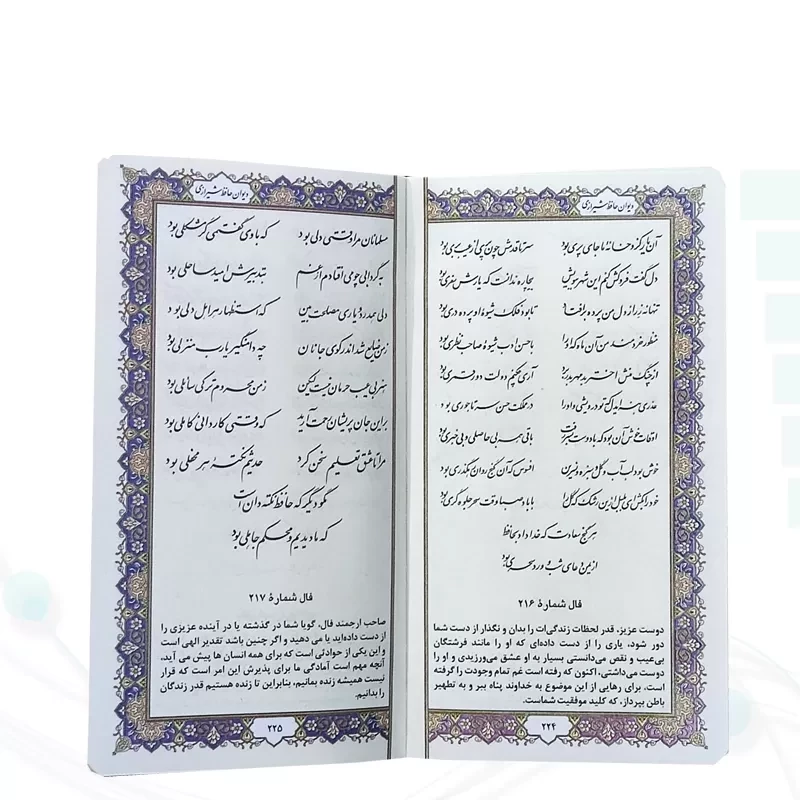 دیوان حافظ شیرازی
آن یار کزو خانه ما جای پری بود سر تا قدمش چون پری از عیب بری بود
دل گفت فروکش کنم این شهر به بویش بیچاره ندانست که یارش سفری بود
تنها نه ز راز دل من پرده برافتاد تا بود فلک شیوه او پرده دری بود
منظور خردمند من آن ماه که او را با حسن ادب شیوه صاحب نظری بود
از چنگ منش اختر بدمهر بدر برد آری چکنم دولت دور قمری بود
عذری بنه ای دل که تو درویشی و او را در مملکت حسن سر تاجوری بود
اوقات خوش آن بود که با دوست بسر رفت باقی همه بی حاصلی و بی خبری بود
خوش بود لب آب و گل و سبزه و نسرین افسوس که آن گنج روان رهگذری بود
خود را بکش ای بلبل ازین رشک که گل را با باد صبا وقت سحر جلوه گری بود
هر گنج سعادت که خدا داد بحافظ
از یمن دعای شب و ورد سحری بود
فال شماره ۲۱۶
دوست عزیز، قدر لحظات زندگی‌ات را بدان و نگذار از دست شما
دور شود، یاری را از دست داده‌ای که او را مانند فرشتگان
بی‌عیب و نقص می‌دانستی بسیار به او عشق می‌ورزیدی و او را
دوست می‌داشتی، اکنون که رفته است غم تمام وجودت را گرفته
است، برای رهایی از این موضوع به خداوند پناه ببر و به تطهیر
باطن بپرداز، که کلید موفقیت شماست.
۲۲۴
دیوان حافظ شیرازی
مسلمانان مرا وقتی دلی بود که با وی گفتمی گر مشکلی بود
به گردابی چو می افتادم از غم بتدبیرش امید ساحلی بود
دلی همدرد و یاری مصلحت بین که استظهار هر اهل دلی بود
ز من ضایع شد اندر کوی جانان چه دامنگیر یارب منزلی بود
هنر بی عیب حرمان نیست لیکن ز من محروم تر کی سائلی بود
بر این جان پریشان رحمت آرید که وقتی کاردانی کاملی بود
مرا تا عشق تعلیم سخن کرد حدیثم نکته هر محفلی بود
مگو دیگر که حافظ نکته دان است
که ما دیدیم و محکم جاهلی بود
فال شماره ۲۱۷
صاحب ارجمند فال، گویا شما در گذشته یا در آینده عزیزی را
از دست داده‌اید یا می دهید و اگر چنین باشد تقدیر الهی است
و این یکی از حوادثی است که برای همه انسان ها پیش می آید،
آنچه مهم است آمادگی ما برای پذیرش این امر است که قرار
نیست همیشه زنده بمانیم، بنابراین تا زنده هستیم قدر زندگان
را بدانیم.
۲۲۵